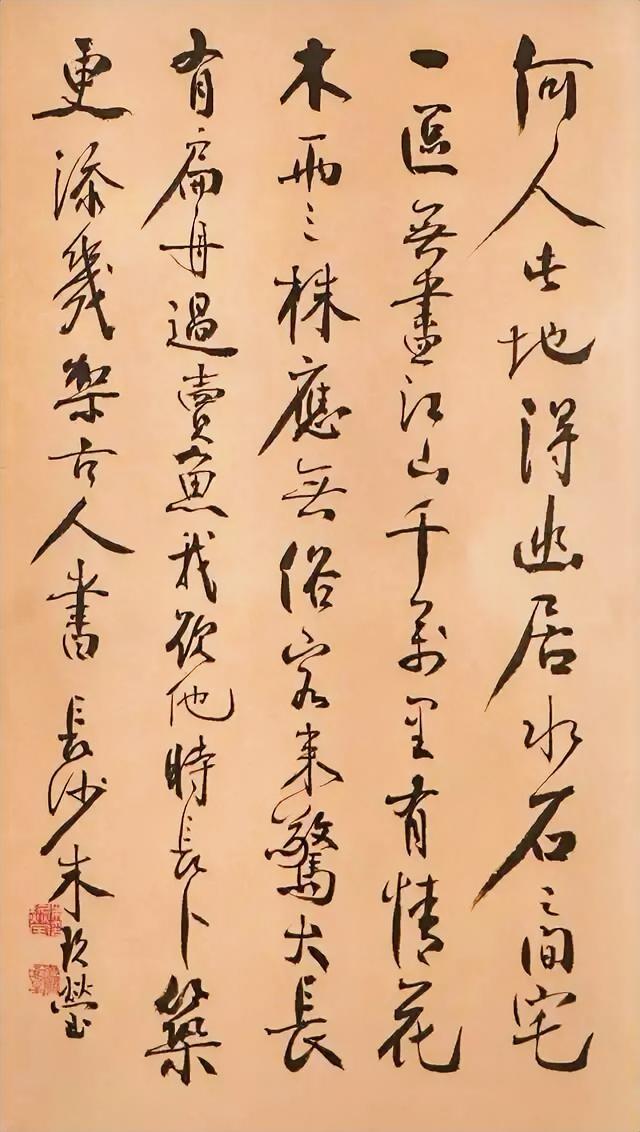 何人此地得幽居水石之間宅
一區無盡江山千萬里有情花
木兩三株應無俗客來驚犬長
有扁舟過賣魚我欲他時長卜築
更添幾架古人書 長沙朱玖瑩